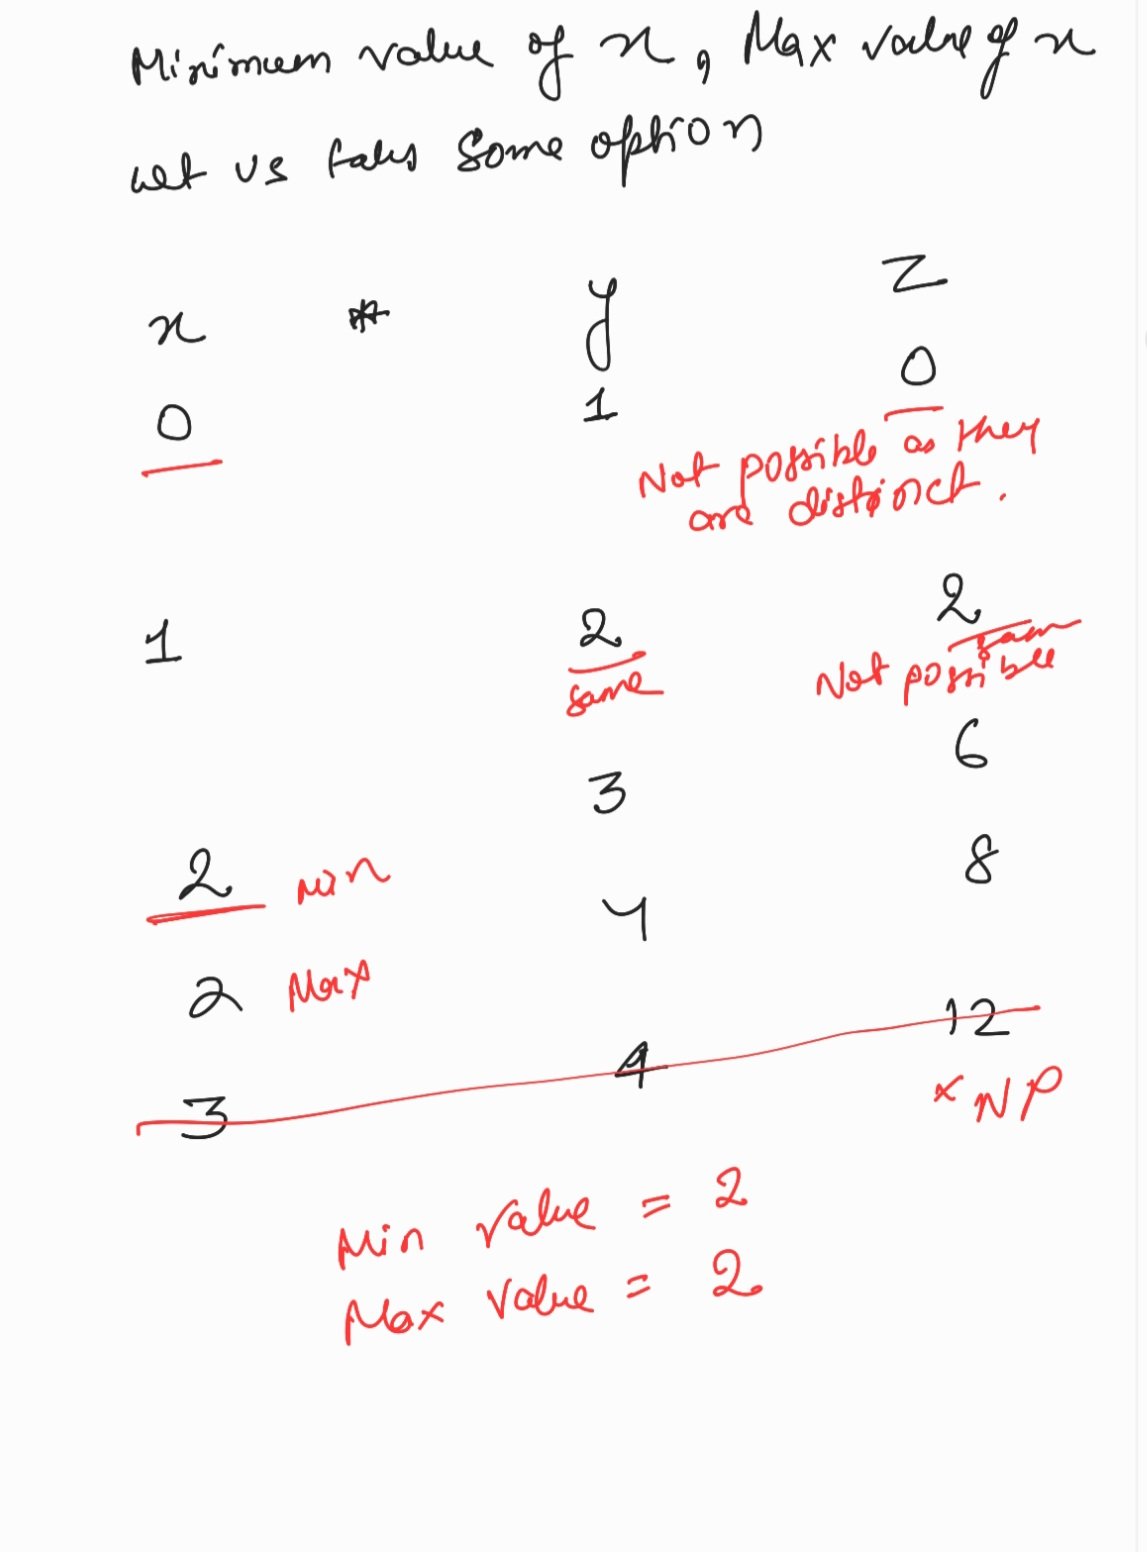 Minimum value of x, Max value of x
Let us take some option
x * y z
0 1 0
Not possible as they
are distinct.
1 2 2
same same
Not possible
3 6
2 Min 8
4
2 Max
3 4 12
x NP
Min value = 2
Max value = 2